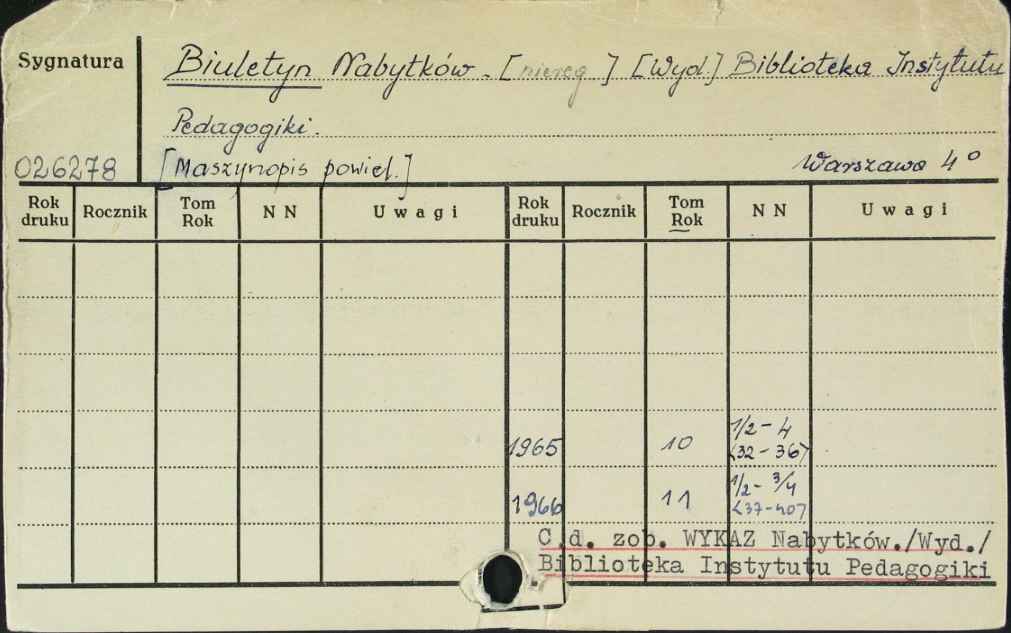 Sygnatura
Biuletyn Nabytków. [niereg] [Wyd.] Biblioteka Instytutu
Pedagogiki.
026278 [Maszynopis powiel.] Warszawa 4°
Rok druku Rocznik Tom Rok NN Uwagi Rok druku Rocznik Tom Rok NN Uwagi
1965 10 1/2 - 4 <32 - 36>
1966 11 1/2 - 3/4 <37-40>
C.d. zob. WYKAZ Nabytków./Wyd./
Biblioteka Instytutu Pedagogiki